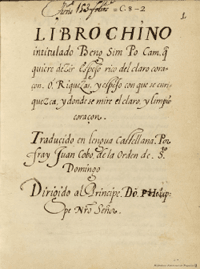 1
LIBRO CHINO
intitulado Beng Sim Po Cam, q̃
quiere dezir Espejo rico del claro cora-
çon. O, Riquezas, y espejo con que se enri-
quezca, y donde se mire el claro, y limpio
coraçon.
Traducido en lengua Castellana, Por
fray Juan Cobo, de la Orden de S.^to
Domingo
Dirigido al Principe. Do. Philip-
pe Nro Señor.